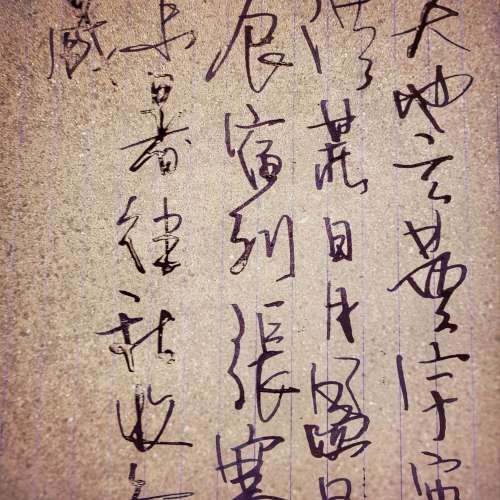 天地玄黃宇宙
洪荒日月盈昃
辰宿列張寒
來暑往秋收冬
藏